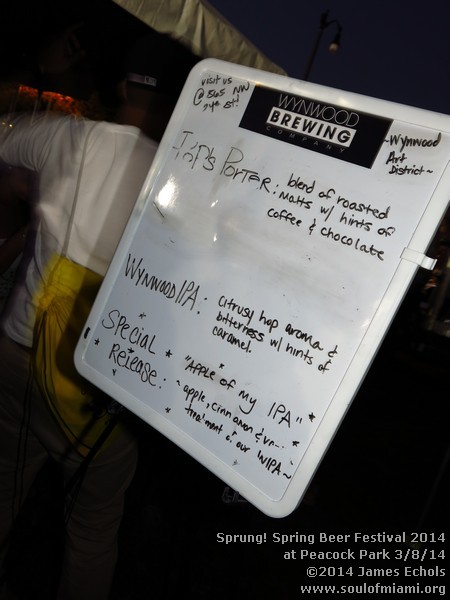 visit us
@ 565 NW
24th St!
WYNWOOD
BREWING
COMPANY
~Wynwood
Art
District~
POP'S PORTER: blend of roasted
malts w/ hints of
coffee & chocolate
WYNWOOD IPA: citrusy hop aroma &
bitterness w/ hints of
caramel.
SPECIAL
RElEASE:
"APPLE of MY IPA"
~apple, cinnamon &
treatment of our WIPA~
Sprung! Spring Beer Festival 2014
at Peacock Park 3/8/14
©2014 James Echols
www.soulofmiami.org